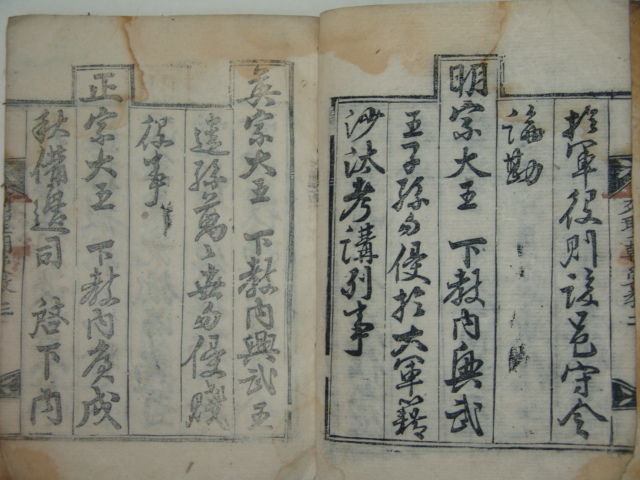 於軍役則該邑守令
論勘
明宗大王 下敎內興武
王子孫勿侵於大軍籍
沙汰考講列事
英宗大王 下敎內興武王
遺孫萬〻世勿侵賤
役事
正宗大王 下敎內庚戌
秋備邊司 啓下內